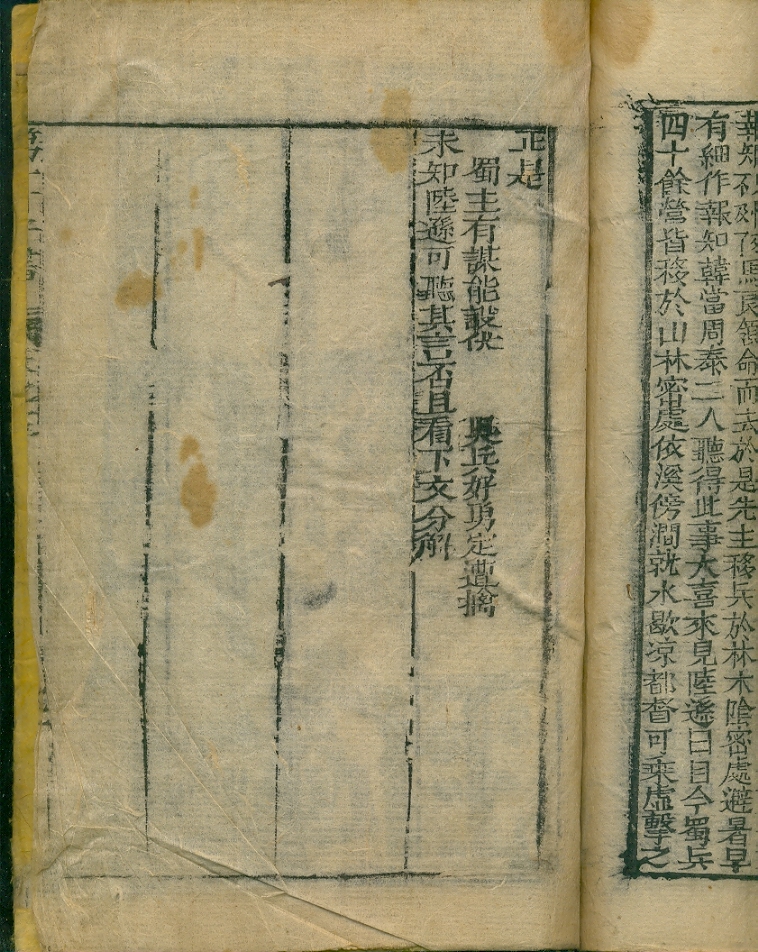 報知不馬良領命而去於是先主移兵於林木陰密處避暑早
有細作報知韓當周泰二人聽得此事大喜來見陸遜曰目今蜀兵
四十餘營皆移於山林密處依溪傍澗就水歇凉都督可乘虛擊之
正是
蜀主有謀能設伏　吳兵好勇定遭擒
未知陸遜可聽其言否且看下文分解